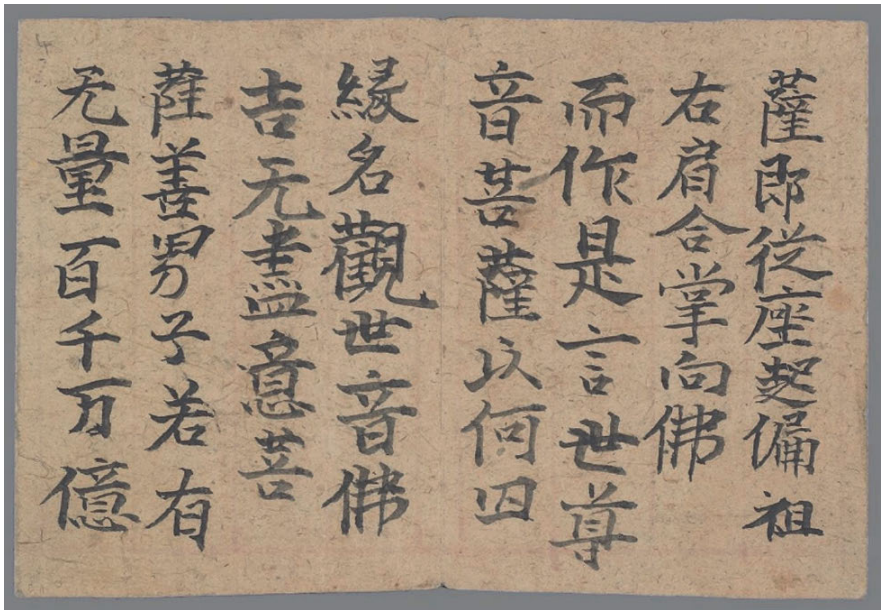 薩即從座起偏袒
右肩合掌向佛
而作是言世尊
音菩薩以何因
緣名觀世音佛
吉无盡意菩
薩善男子若有
无量百千万億